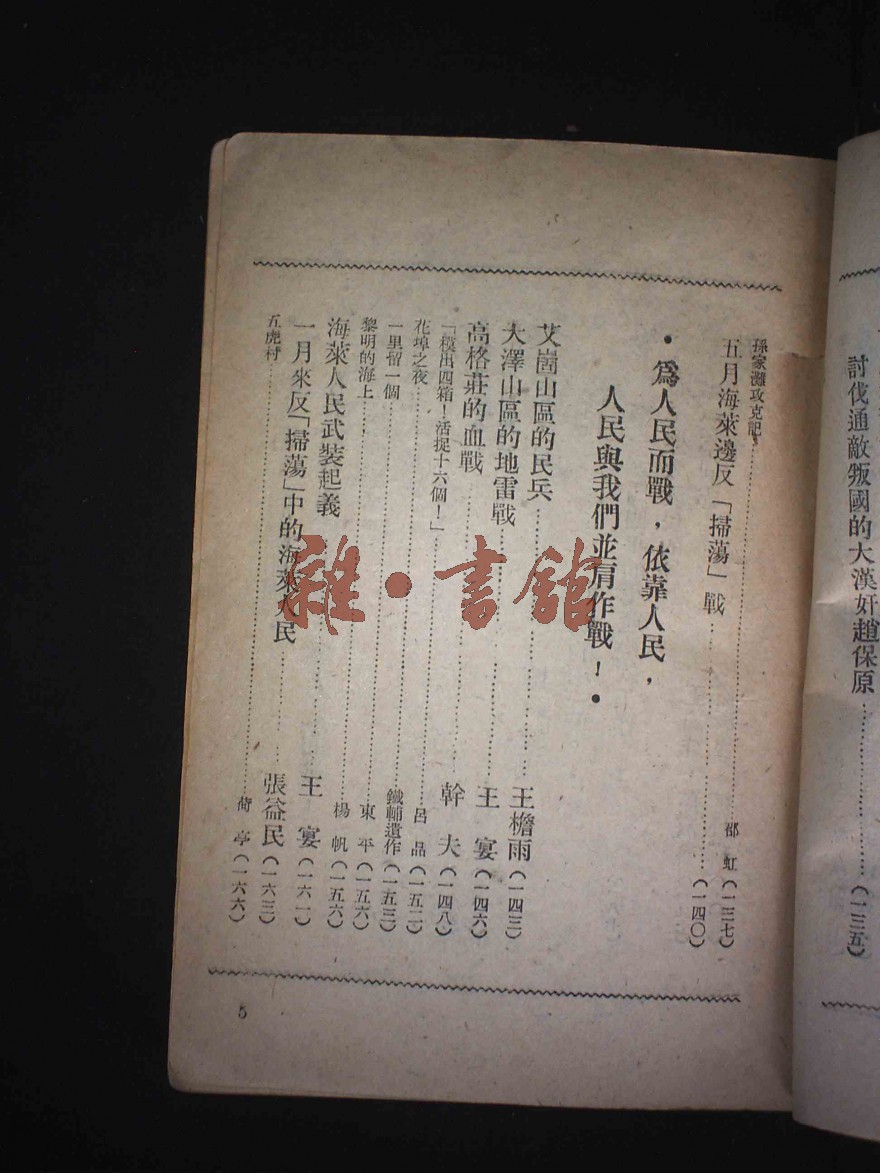 討伐通敵叛國的大漢奸趙保原……(一三五)
孫家灘攻克記……邵 虹(一三七)
五月海萊邊反「掃蕩」戰……(一四〇)
•為人民而戰，依靠人民，
人民與我們並肩作戰！•
艾崮山區的民兵……王檐雨(一四三)
大澤山區的地雷戰……王 宴(一四六)
高格莊的血戰……幹 夫(一四八)
「模出四箱！活捉十六個！」……呂 品(一五二)
花埠之夜……鐵輔遺作(一五三)
一里留一個……東 平(一五六)
黎明的海上……楊 帆(一五六)
海萊人民武裝起義……王 宴(一六一)
一月來反「掃蕩」中的海萊人民……張益民(一六三)
五虎村……荷 亭(一六六)
5
雜·書館